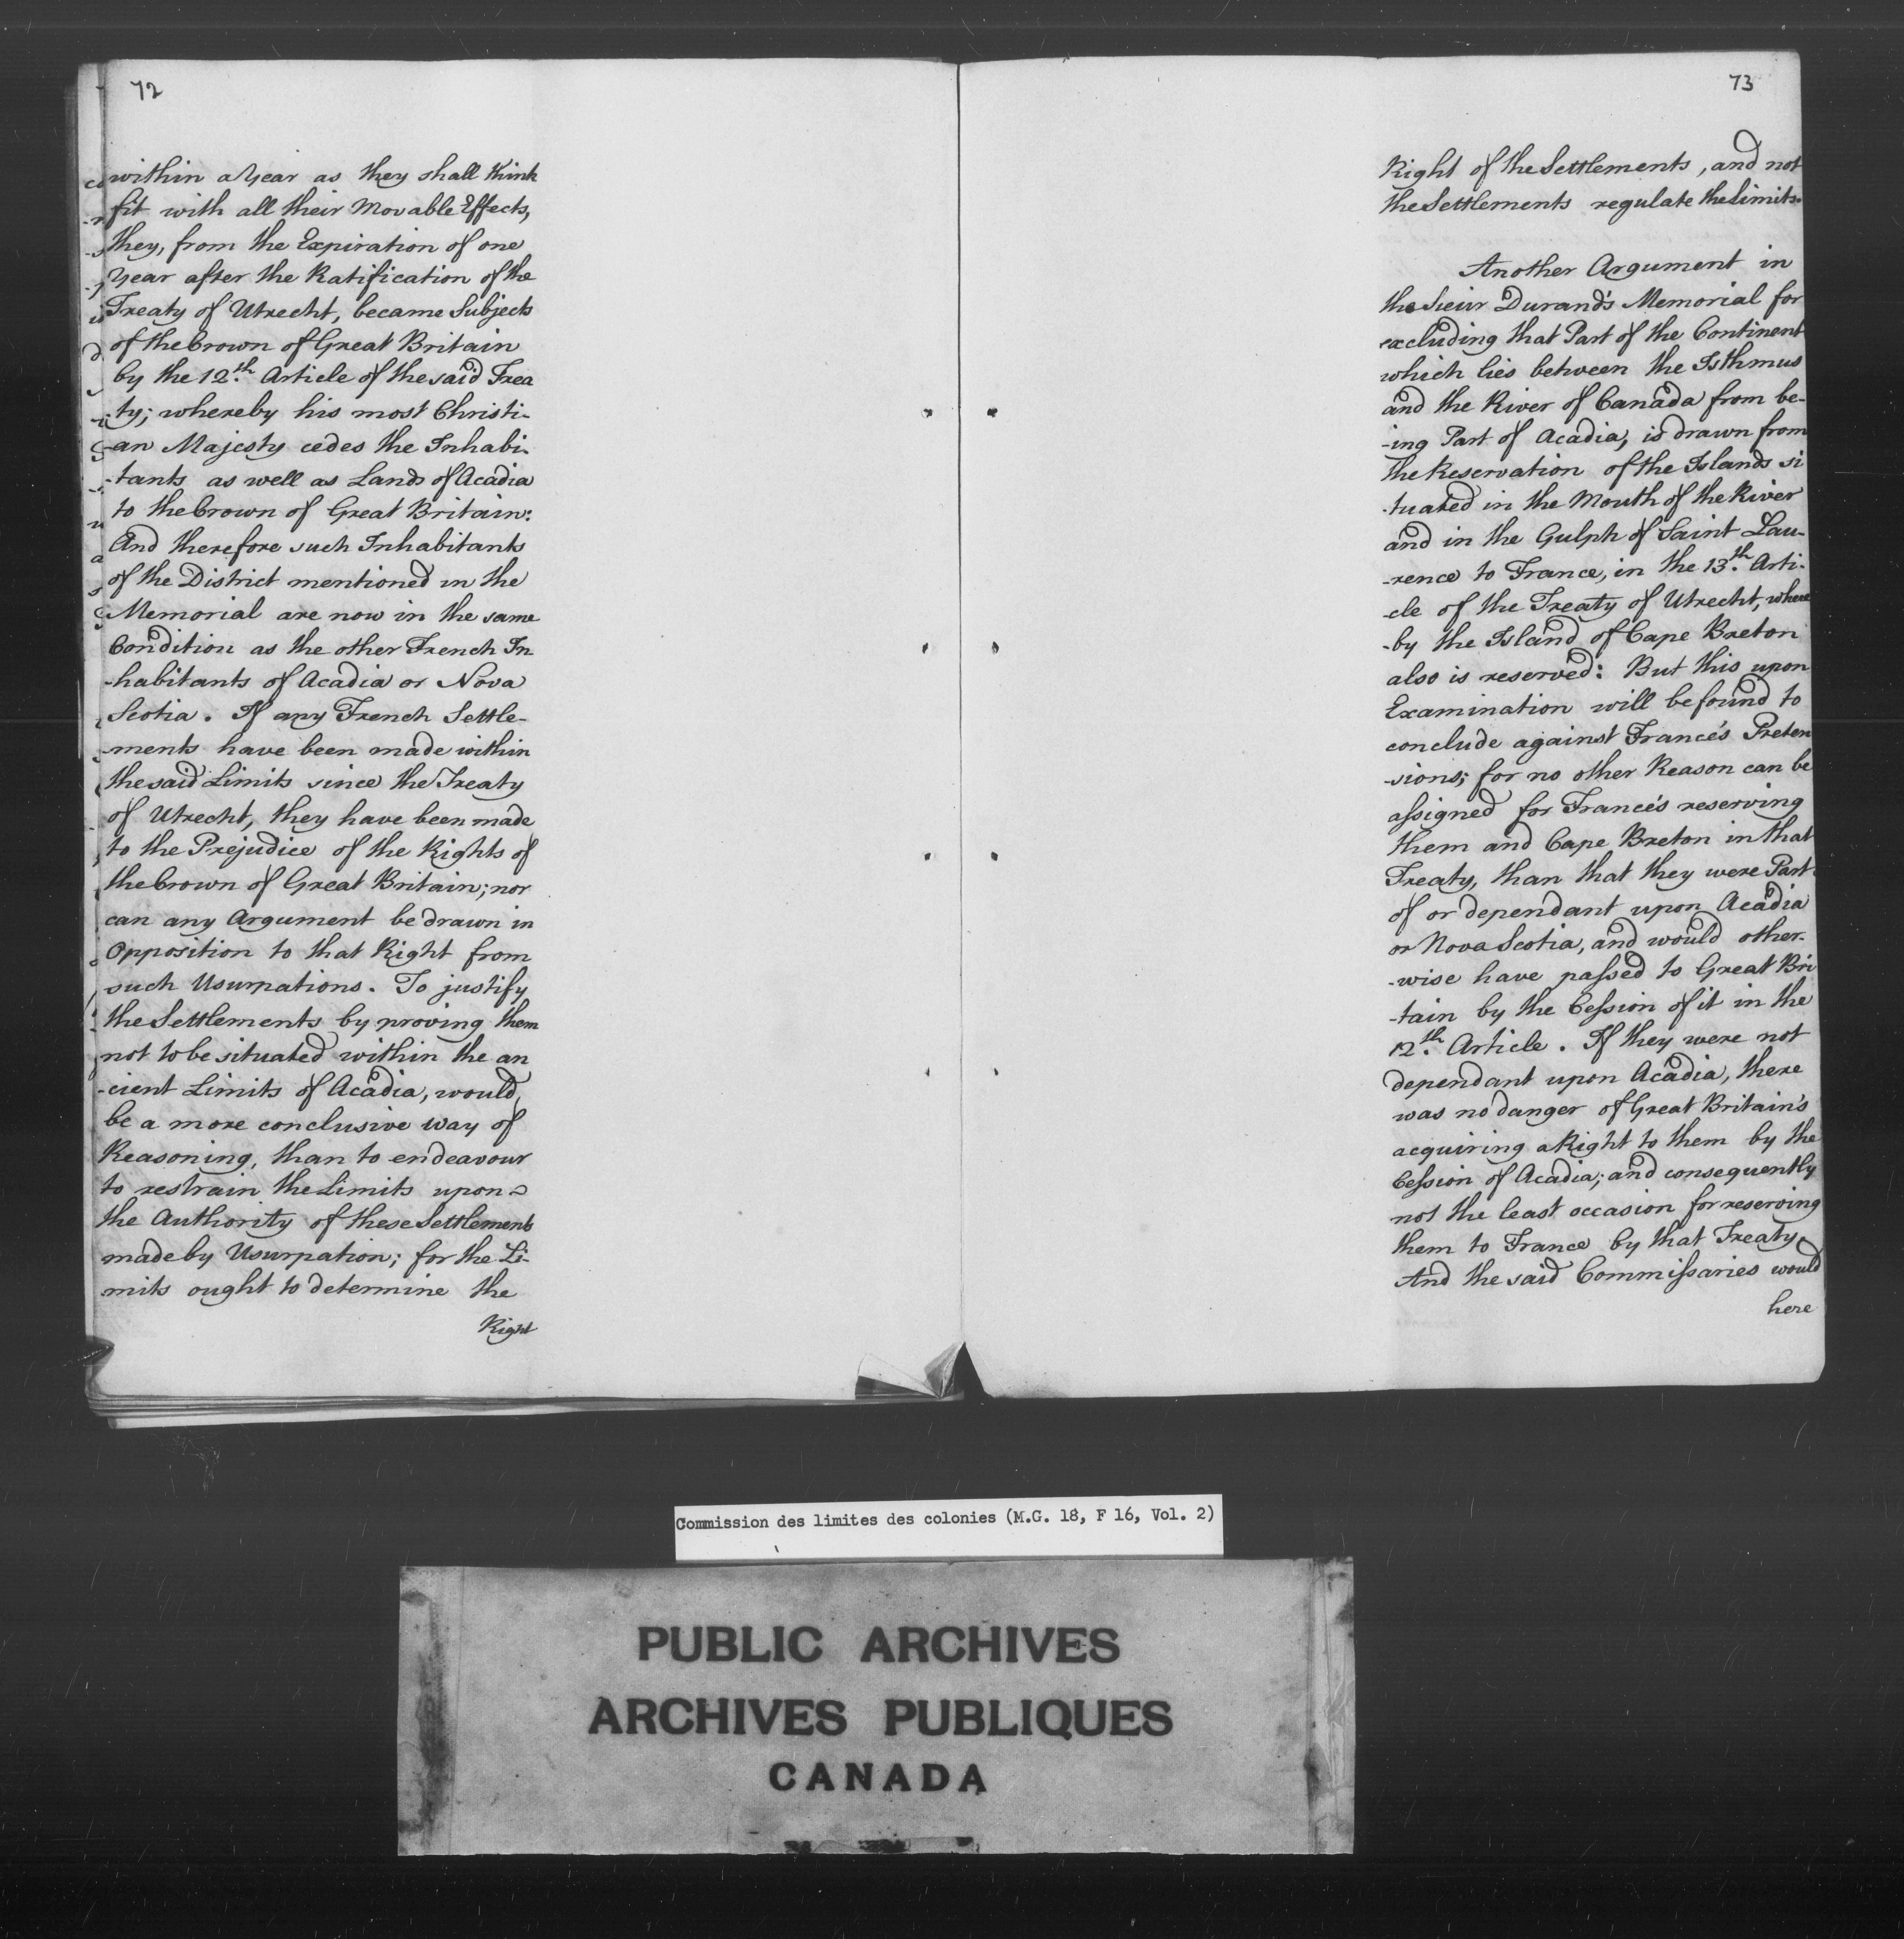 72
within a Year as they shall think
fit with all their Movable Effects,
they, from the Expiration of one
Year after the Ratification of the
Treaty of Utrecht, became Subjects
of the Crown of Great Britain
by the 12.th Article of the said Trea
-ty; whereby his most Christi-
-an Majesty cedes the Inhabi-
-tants as well as Lands of Acadia
to the Crown of Great Britain:
And therefore such Inhabitants
of the District mentioned in the
Memorial are now in the same
Condition as the other French In
-habitants of Acadia or Nova
Scotia. If any French Settle-
-ments have been made within
the said Limits since the Treaty
of Utrecht, they have been made
to the Prejudice of the Rights of
the Crown of Great Britain; nor
can any Argument be drawn in
Opposition to that Right from
such Usurpations. To justify
the Settlements by proving them
not to be situated within the an
-cient Limits of Acadia, would
be a more conclusive way of
Reasoning, than to endeavour
to restrain the Limits upon
the Authority of these Settlements
made by Usurpation; for the Li-
mits ought to determine the
Right
73
Right of the Settlements, and not
the Settlements regulate the Limits.
Another Argument in
the Sieur Durand's Memorial for
excluding that Part of the Continent
which lies between the Isthmus
and the River of Canada from be-
-ing Part of Acadia, is drawn from
the Reservation of the Islands si
-tuated in the Mouth of the River
and in the Gulph of Saint Lau-
-rence to France, in the 13.th Arti-
-cle of the Treaty of Utrecht, where
-by the Island of Cape Breton
also is reserved: But this upon
Examination will be found to
conclude against France's Preten
-sions; for no other Reason can be
assigned for France's reserving
them and Cape Breton in that
Treaty, than that they were Part
of or dependant upon Acadia
or Nova Scotia, and would other-
-wise have passed to Great Bri
-tain by the Cession of it in the
12.th Article. If they were not
dependant upon Acadia, there
was no danger of Great Britain's
acquiring a Right to them by the
Cession of Acadia; and consequently
not the least occasion for reserving
them to France by that Treaty.
And the said Commissaries would
here
Commission des limites des colonies (M.G. 18, F 16, Vol. 2)
PUBLIC ARCHIVES
ARCHIVES PUBLIQUES
CANADA